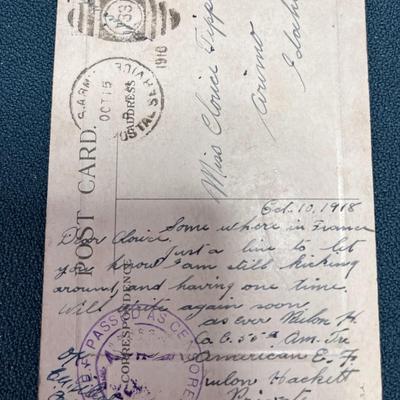 POST CARD.
ADDRESS
CORRESPONDENCE
OCT 15
1918
Miss Cloice
Arimo
Idaho
Oct. 10, 1918
Some where in France
Dear Cloice,
Just a line to let
you know I am still kicking
around and having one time.
Will write again soon,
as ever Rulon H.
Co G. Am. Tr.
American E. F.
Rulon Hackett
Private
PASSED AS CENSORED
OK